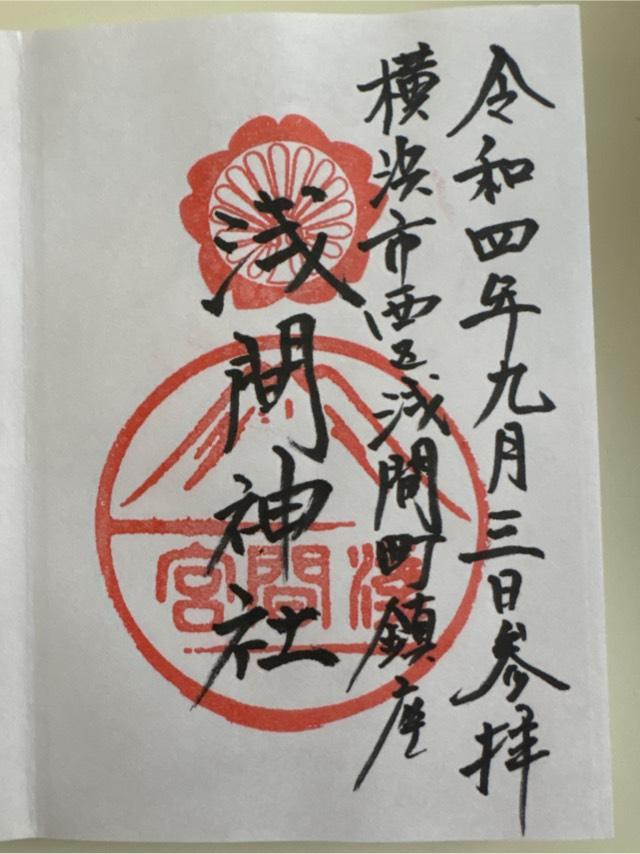 令和四年九月三日参拝
横浜市西区浅間町鎮座
浅間神社
浅間宮